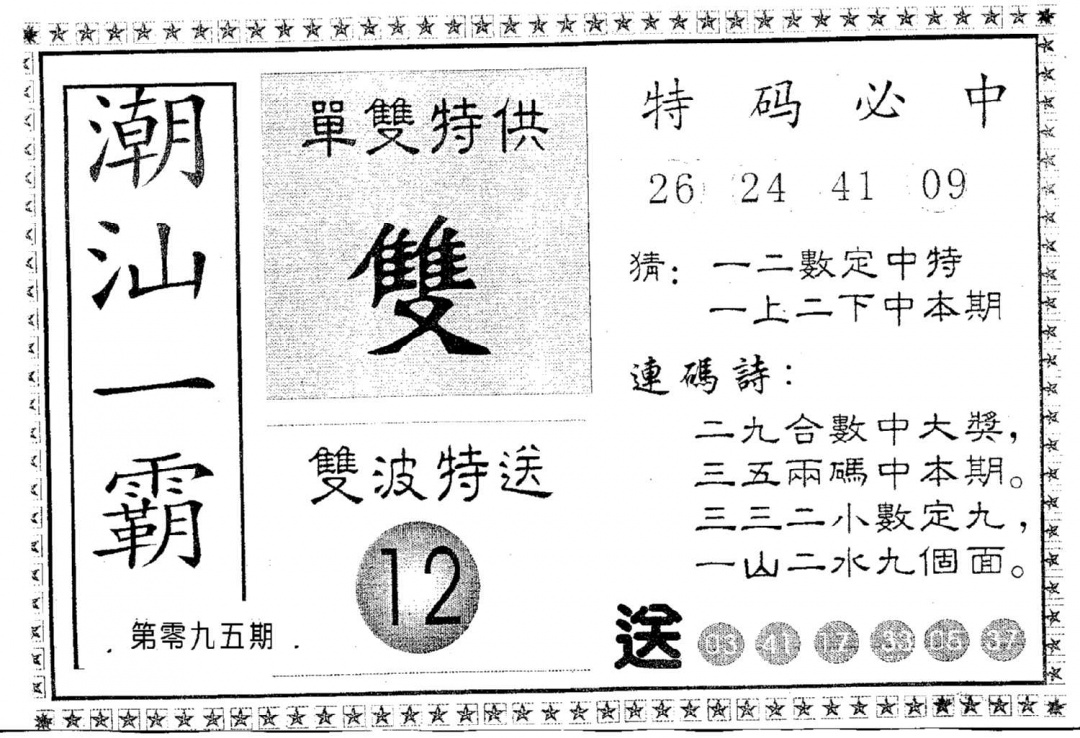 潮汕一霸
第零九五期
單雙特供
雙
雙波特送
12
特码必中
26 24 41 09
猜：一二數定中特
一上二下中本期
連碼詩：
二九合數中大獎，
三五兩碼中本期。
三三二小數定九，
一山二水九個面。
送 03 41 17 33 06 37